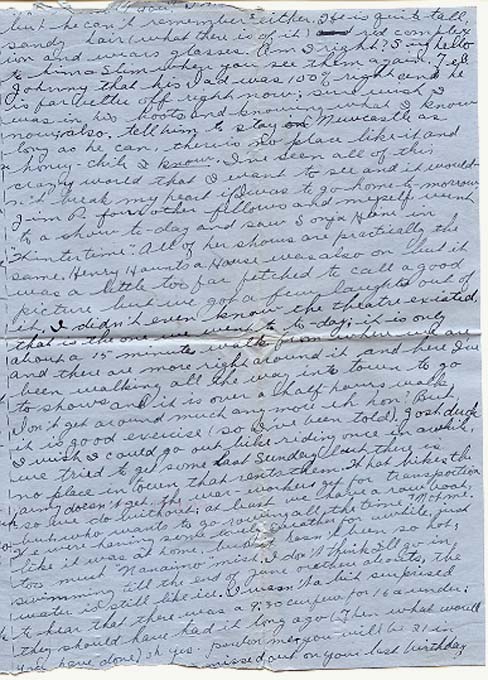 but he can't remember either. He is quite tall,
sandy hair (what there is of it) and red complex
ion and wears glasses. Am I right? Say hello
to Arma Slim when you see them again. Tell
Johnny that his Dad was 100% right and he
is far better off right now; sure wish I
was in his boots and knowing what I know
now, also. tell him to stay in Newcastle as
long as he can, there is no place like it and
honey-chile I know. I've seen all of this
crazy world that I want to see and it would-
n't break my heart if I was to go home to-morrow
Jim P. four other fellows and myself went
to a show to-day and saw Sonja Heni in
"Wintertime". All of her shows are practically the
same. Henry Haunts a House was also on but it
was a little too far fetched to call a good
picture but we got a few laughs out of
it. I didn't even know the theatre existed
that is the one we went to to-day; it is only
about a 15 minute walk from where we are
and there are more right around it and here I've
been walking all the way into town to go
to shows and it is over a half hours walk
Don't get around much any more eh hon! But
it is good exercise (so I've been told), gosh duck
I wish I could go out bike riding once in awhile,
we tried to get some last Sunday but there is
no place in town that rents them. What bikes the
army doesn't get, the war-workers get for transportion
so we do without; at least we have a row boat,
but who wants to go rowing all the time? Not me.
We were having some lovely weather for awhile, just
like it was at home, but it hasn been so hot,
too much Nanaimo mist. I don't think I'll go in
swimming till the end of June or there abouts, the
water is still like ice. I wasn't a bit surprised
to hear that there was a 9:30 curfew for 16 a under:
they should have had it long ago (Then what would
you have done) oh yes. pardon me, you will be 21 in
missed out on your last birthday